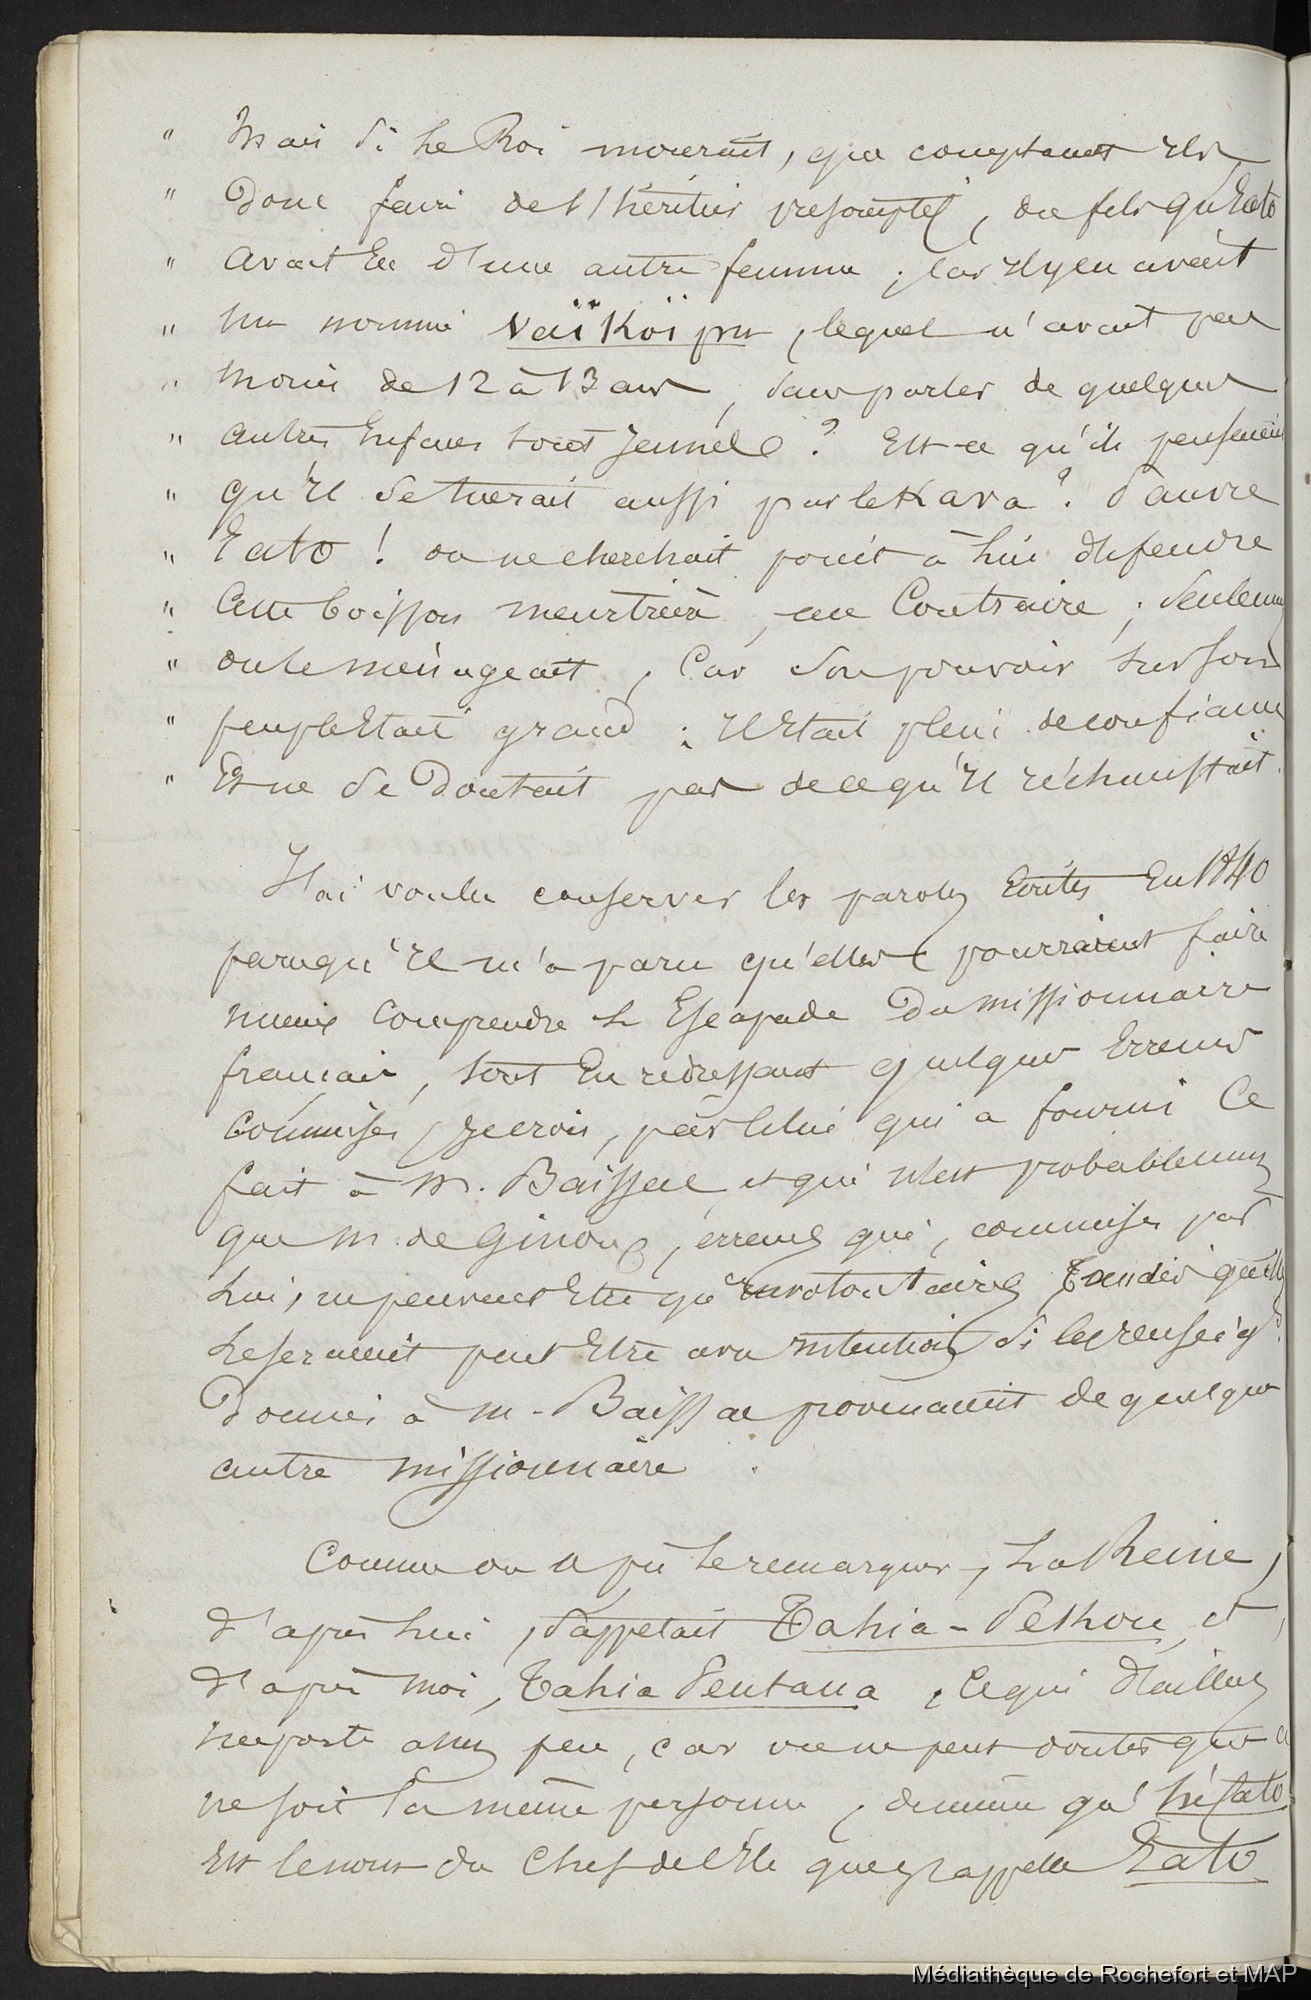 " Mais si le Roi mourait, que comptaient ils
" Donc faire de l'héritier présomptif, du fils qu'Eato
" avait eu d'une autre femme ; car il y en avait
" un nommé Vaïkoï, lequel n'avait pas
" moins de 12 à 13 ans, sans parler de quelques
" autres Enfans tout jeunes ? Est-ce qu'ils pensaient
" qu'il se tuerait aussi par le Kava ? Pauvre
" Eato ! on ne cherchait point à lui défendre
" Cette boisson meurtrière, au Contraire ; seulement
" on le ménageait, Car son pouvoir sur son
" peuple Etait grand : il Etait plein de confiance
" Et ne se Doutait pas de ce qu'il réchauffait.
J'ai voulu conserver les paroles Ecrites En 1840
parcequ'il m'a paru qu'elles pourraient faire
mieux Comprendre l'Escapade Du missionnaire
français, tout En redressant quelques Erreurs
Commises, je crois, par celui qui a fourni Ce
fait à M. Baissac, et qui n'est probablement
que M. de Ginoux, erreurs qui, commises par
Lui, ne peuvent Etre qu'involontaires Tandis qu'elles
le seraient peut Etre avec intention si les renseigts
Donnés à M. Baissac provenaient de quelque
autre missionnaire.
Comme on a pu le remarquer, La Reine,
d'après Lui, s'appelait Tahia-Pekhou, et,
d'après moi, Tahia Pentana, Ce qui d'ailleurs
importe assez peu, car on ne peut douter que ce
ne soit la même personne, de même qu'
Est le nom du Chef de l'Ile que j'appelle Eato
Médiathèque de Rochefort et MAP